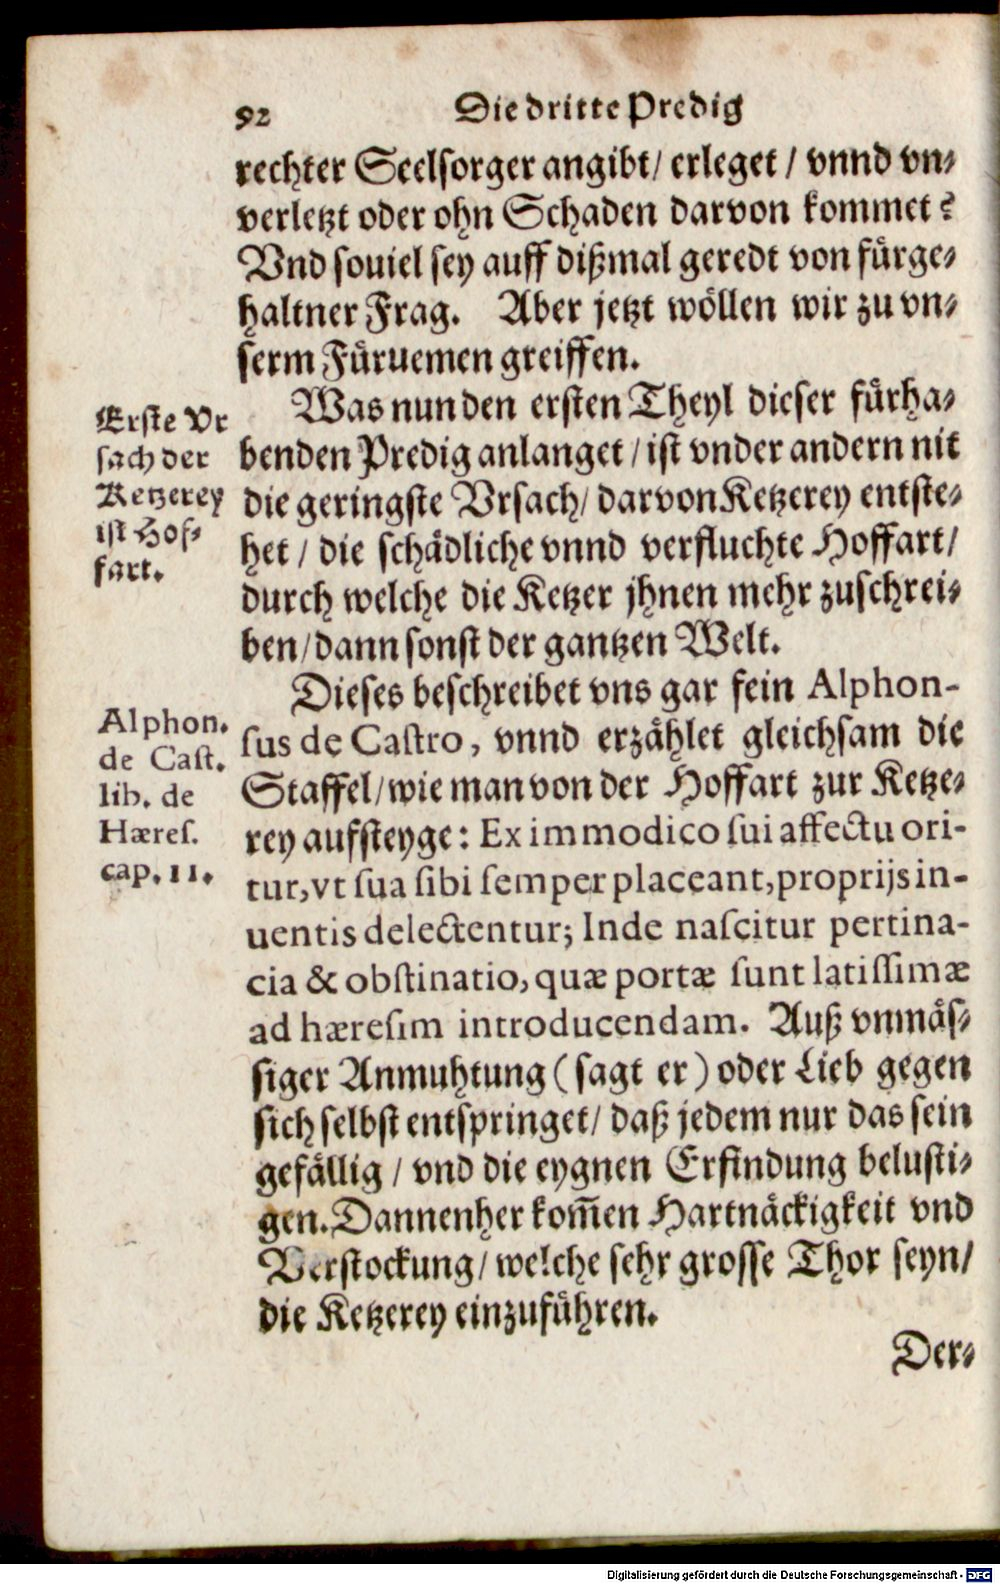 92 Die dritte Predig
rechter Seelsorger angibt/ erleget / vnnd vn⸗
verletzt oder ohn Schaden darvon kommet?
Vnd souiel sey auff dißmal geredt von fürge⸗
haltner Frag. Aber jetzt wöllen wir zu vn⸗
serm Füruemen greiffen.
Was nun den ersten Theyl dieser fürha⸗
benden Predig anlanget / ist vnder andern nit
die geringste Vrsach/ darvon Ketzerey entste⸗
het / die schädliche vnnd verfluchte Hoffart/
durch welche die Ketzer jhnen mehr zuschrei⸗
ben/ dann sonst der gantzen Welt.
Erste Vr
sach der
Ketzerey
ist Hof⸗
fart.
Dieses beschreibet vns gar fein Alphon-
sus de Castro, vnnd erzählet gleichsam die
Staffel/ wie man von der Hoffart zur Ketze⸗
rey aufsteyge: Ex immodico sui affectu ori-
tur, vt sua sibi semper placeant, proprijs in-
uentis delectentur; Inde nascitur pertina-
cia & obstinatio, quæ portæ sunt latissimæ
ad hæresim introducendam. Auß vnmäs⸗
siger Anmuhtung (sagt er) oder Lieb gegen
sich selbst entspringet/ daß jedem nur das sein
gefällig / vnd die eygnen Erfindung belusti⸗
gen. Dannenher kom̄en Hartnäckigkeit vnd
Verstockung/ welche sehr grosse Thor seyn/
die Ketzerey einzuführen.
Alphon.
de Cast.
lib. de
Hæres.
cap. 11.
Der⸗
Digitalisierung gefördert durch die Deutsche Forschungsgemeinschaft - DFG